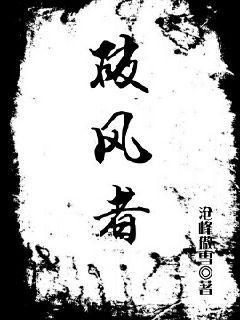 破风者
沧峰傲雪◎著